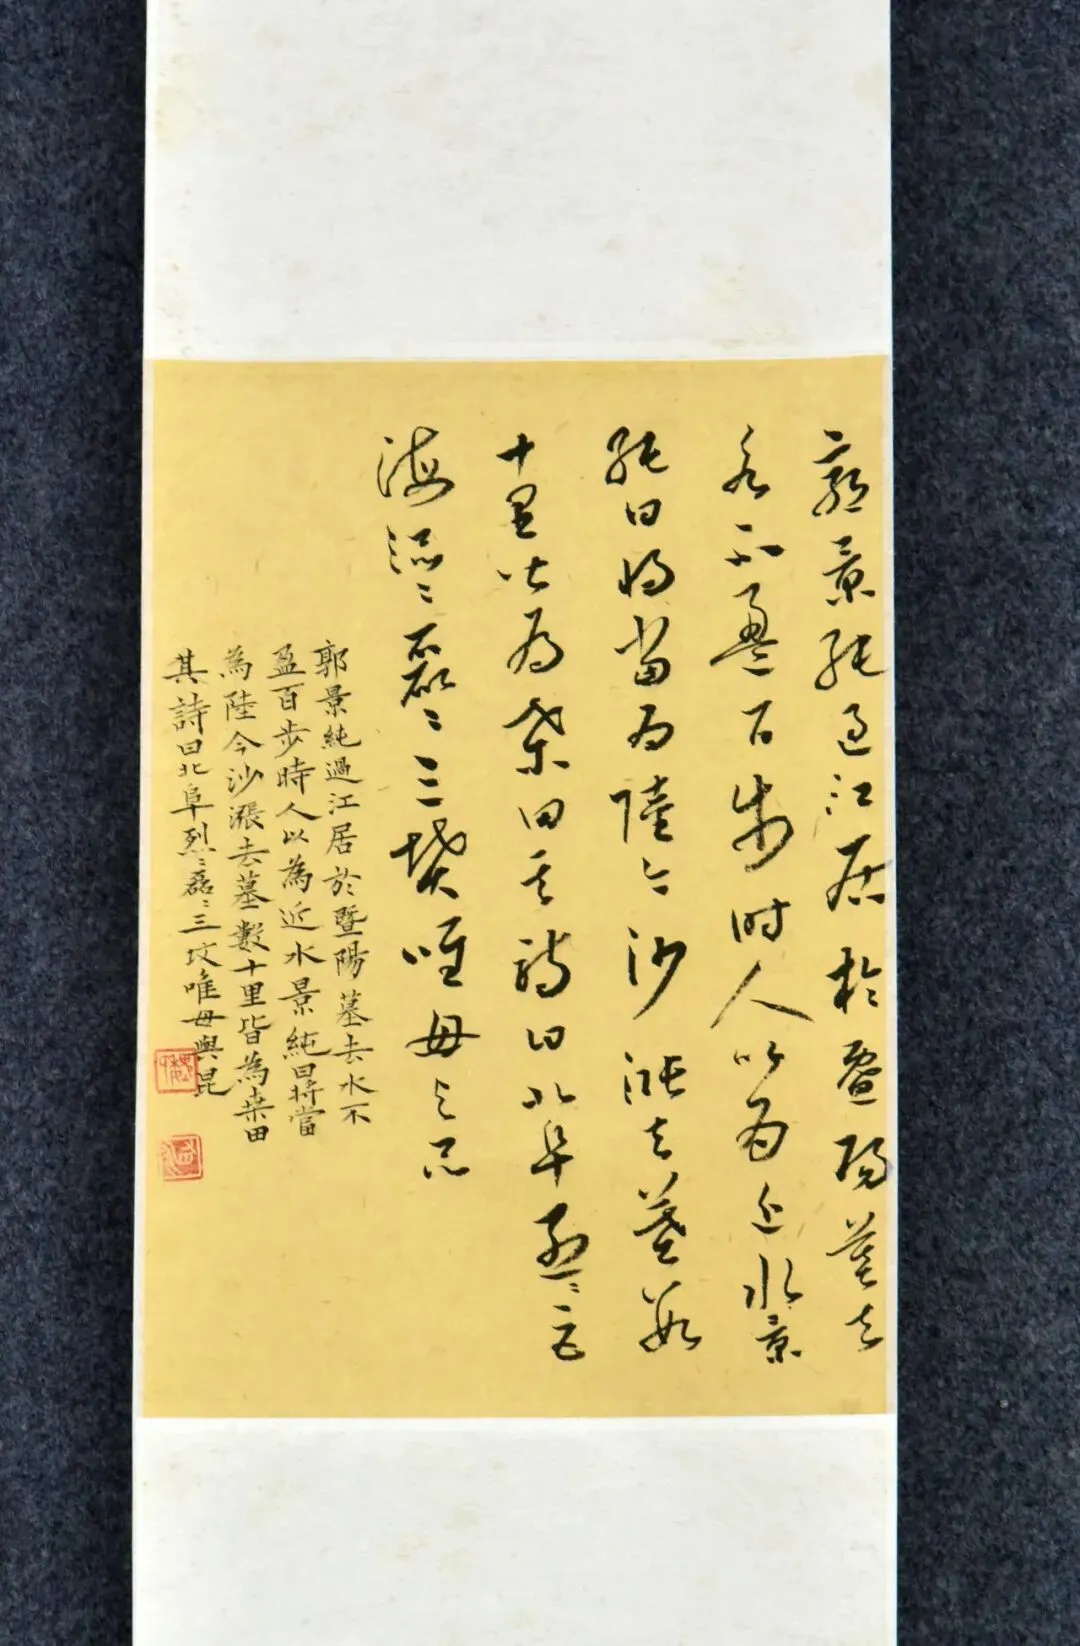 郭景純過江居於暨陽墓去
水不盈百步時人以為近水景
純曰將當為陸今沙漲去墓數
十里皆為桒田其詩曰北阜烈〻巨
海混〻磊〻三墳唯母與昆
郭景純過江居於暨陽墓去水不
盈百步時人以為近水景純曰將當
為陸今沙漲去墓數十里皆為桒田
其詩曰北阜烈〻磊〻三坟唯母與昆